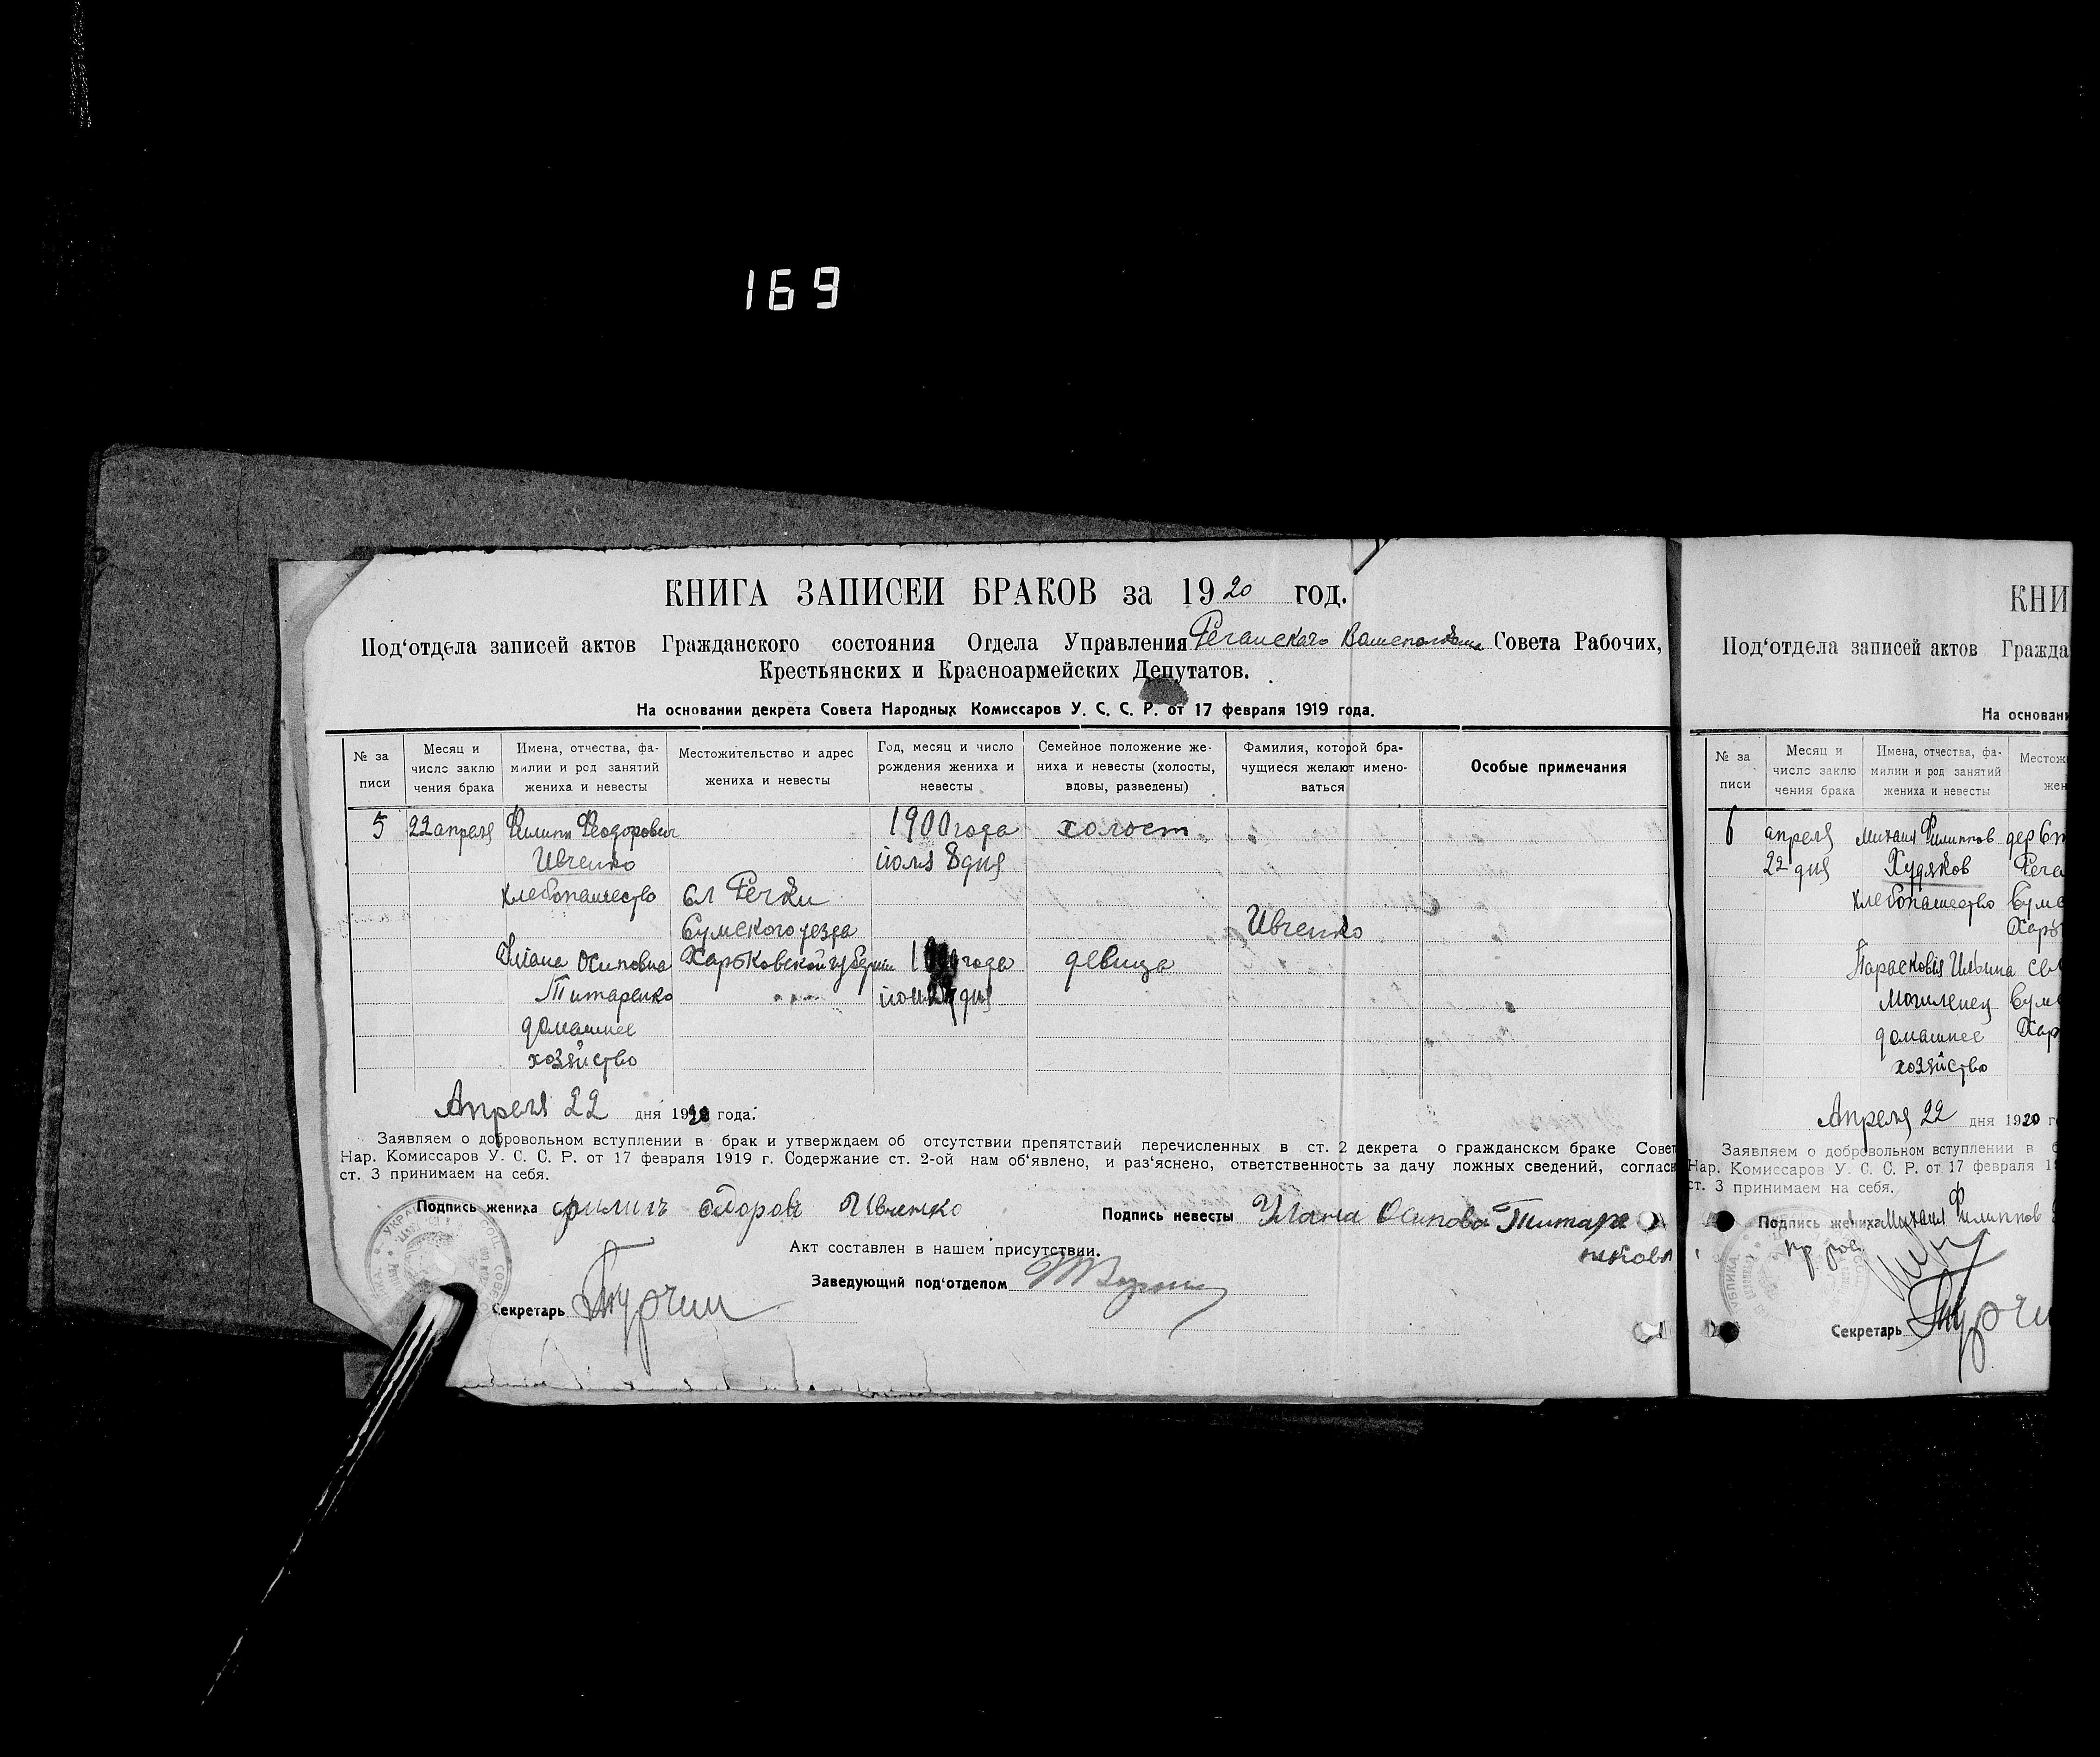 169
КНИГА ЗАПИСЕЙ БРАКОВ за 1920 год.
Под'отдела записей актов Гражданского состояния Отдела Управления Речанскаго Совета Рабочих,
Крестьянских и Красноармейских Депутатов.
На основании декрета Совета Народных Комиссаров У. С. С. Р. от 17 февраля 1919 года.
№ за писи
Месяц и число заклю чения брака
Имена, отчества, фамилии и род занятий жениха и невесты
Местожительство и адрес жениха и невесты
Год, месяц и число рождения жениха и невесты
Семейное положение жениха и невесты (холосты, вдовы, разведены)
Фамилия, которой брачущиеся желают именоваться
Особые примечания
5 22 апреля Филипп Феодорович 1900 года холост
Ивченко июля 8 дня
хлебопашество сл Речки
Сумского уезда Ивченко
Улиана Осиповна Харьковской губернии года девица
Титаренко дня
домашнее
хозяйство
Апреля 22 дня 1920 года.
Заявляем о добровольном вступлении в брак и утверждаем об отсутствии препятствий перечисленных в ст. 2 декрета о гражданском браке Совет
Нар. Комиссаров У. С. С. Р. от 17 февраля 1919 г. Содержание ст. 2-ой нам об'явлено, и раз'яснено, ответственность за дачу ложных сведений, соглас
ст. 3 принимаем на себя.
Подпись жениха филипъ Ивченко
Подпись невесты Уляна Осипова Титаре
нкова
Акт составлен в нашем присутствии.
Заведующий под'отделом
Секретарь Турчин
КНИ
Под'отдела записей актов Гражда
На основани
№ за писи
Месяц и число заклю чения брака
Имена, отчества, фамилии и род занятий жениха и невесты
Местож
жен
6 апреля Михаил Филиппов дер
22 дня Худяков Реча
хлебопашество Сумс
Харь
Парасковия Ильина сл
Могиленец Сумс
домашнее Хар
хозяйство
Апреля 22 дня 1920 г
Заявляем о добровольном вступлении в б
Нар. Комиссаров У. С. С. Р. от 17 февраля 19
ст. 3 принимаем на себя.
Подпись жениха Михаил Филиппов
Секретарь Турчи